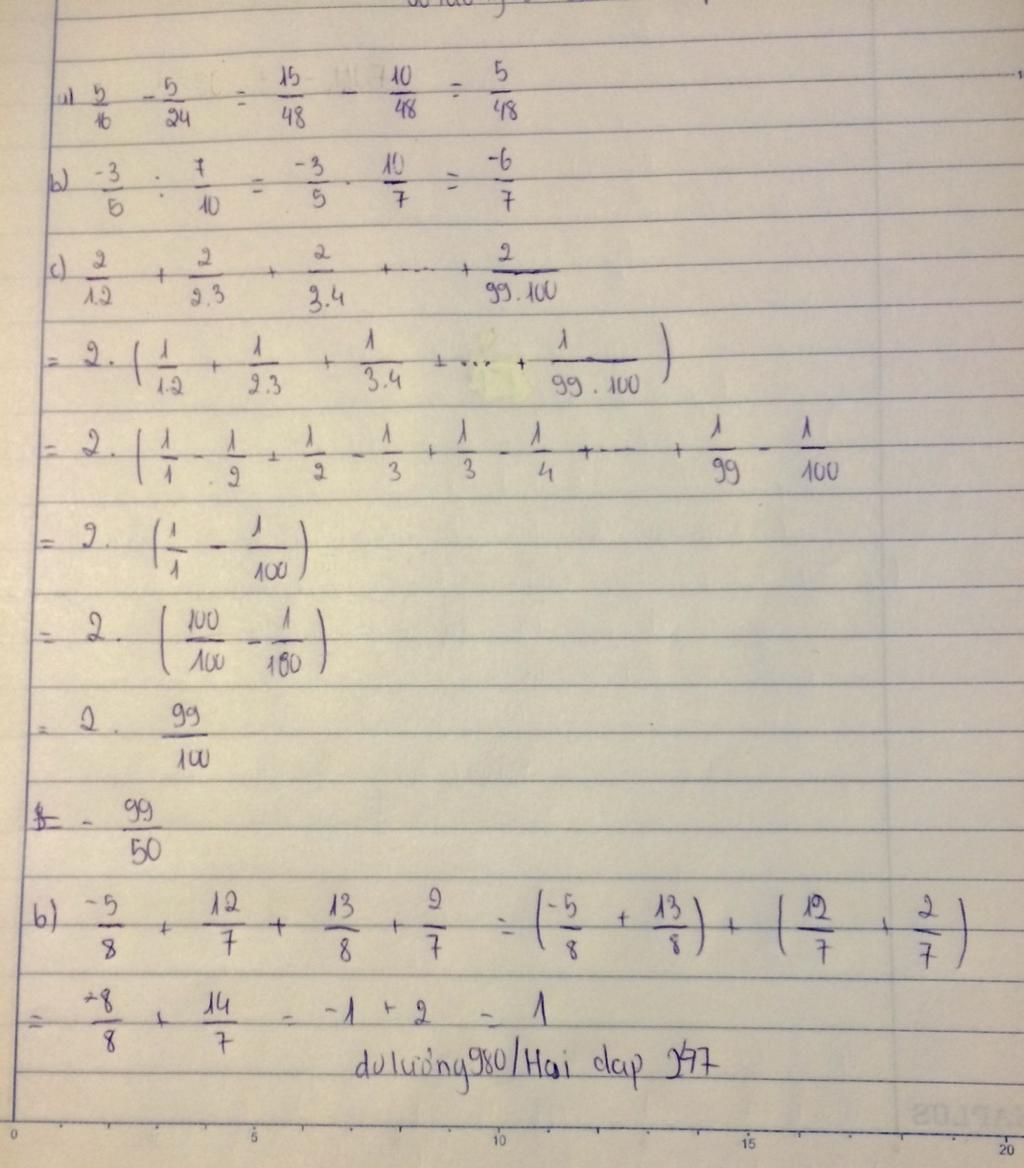 a) 5/16 - 5/24 = 15/48 - 10/48 = 5/48
b) -3/5 : 7/10 = -3/5 . 10/7 = -6/7
c) 2/1.2 + 2/2.3 + 2/3.4 + .... + 2/99.100
= 2 . ( 1/1.2 + 1/2.3 + 1/3.4 + ... + 1/99.100 )
= 2 . ( 1/1 - 1/2 + 1/2 - 1/3 + 1/3 - 1/4 + .... + 1/99 - 1/100
= 2 . ( 1/1 - 1/100 )
= 2 . ( 100/100 - 1/100 )
= 2 . 99/100
= - 99/50
b) -5/8 + 12/7 + 13/8 + 2/7 = ( -5/8 + 13/8 ) + ( 12/7 + 2/7 )
= -8/8 + 14/7 = -1 + 2 = 1
/Hoi dap 247
0 5 10 15 20